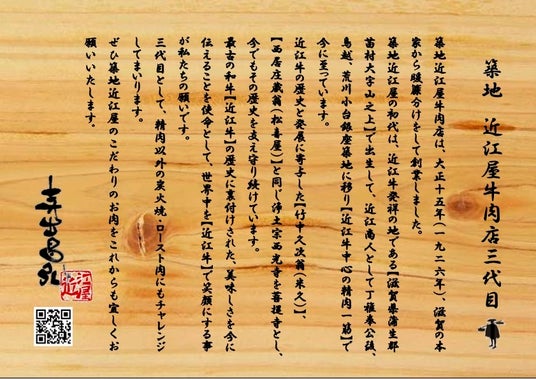 築地 近江屋牛肉店三代目
築地近江屋牛肉店は、大正十五年(一九二六年)、滋賀の本
家から暖簾分けをして創業しました。
築地近江屋の初代は、近江牛発祥の地である【滋賀県蒲生郡
苗村大字山之上】で出生して、近江商人として丁稚奉公後、
鳥越、荒川小台銀座築地に移り【近江牛中心の精肉一筋】で
今に至っています。
近江牛の歴史と発展に寄与した【竹中久次翁(米久)】、
【西居庄蔵翁(松喜屋)】と同じ浄土宗西光寺を菩提寺とし、
今でもその歴史を支え守り続けています。
最古の和牛【近江牛】の歴史に裏付けされた、美味しさを今に
伝えることを使命として、世界中を【近江牛】で笑顔にする事
が私たちの願いです。
三代目として、精肉以外の炭火焼・ロースト肉にもチャレンジ
してまいります。
ぜひ築地近江屋のこだわりのお肉をこれからも宜しくお
願いいたします。